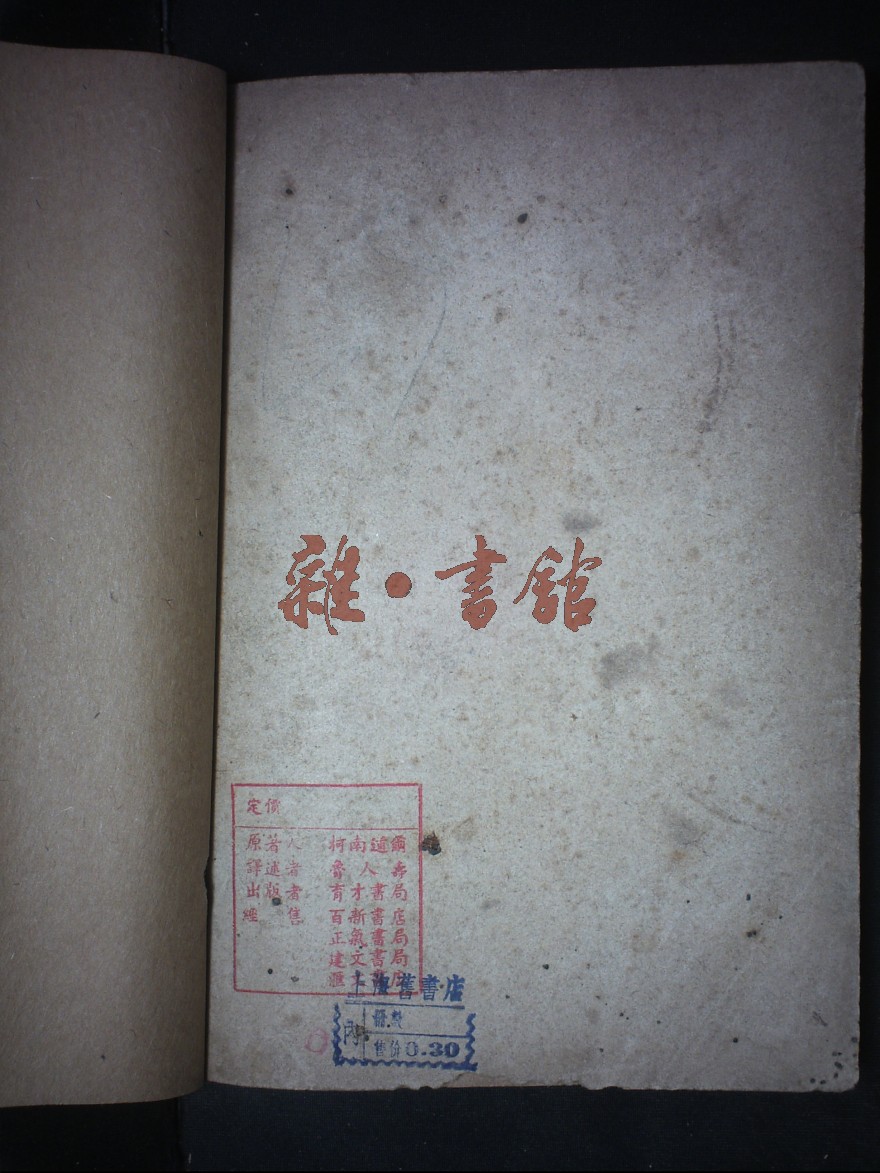 雜·書館
定價
原著人 柯南道爾
譯述者 魯人壽
出版者 育才書局
經售 百新書店
正氣書局
建文書局
上海舊書店
內
冊數
售价 0.30